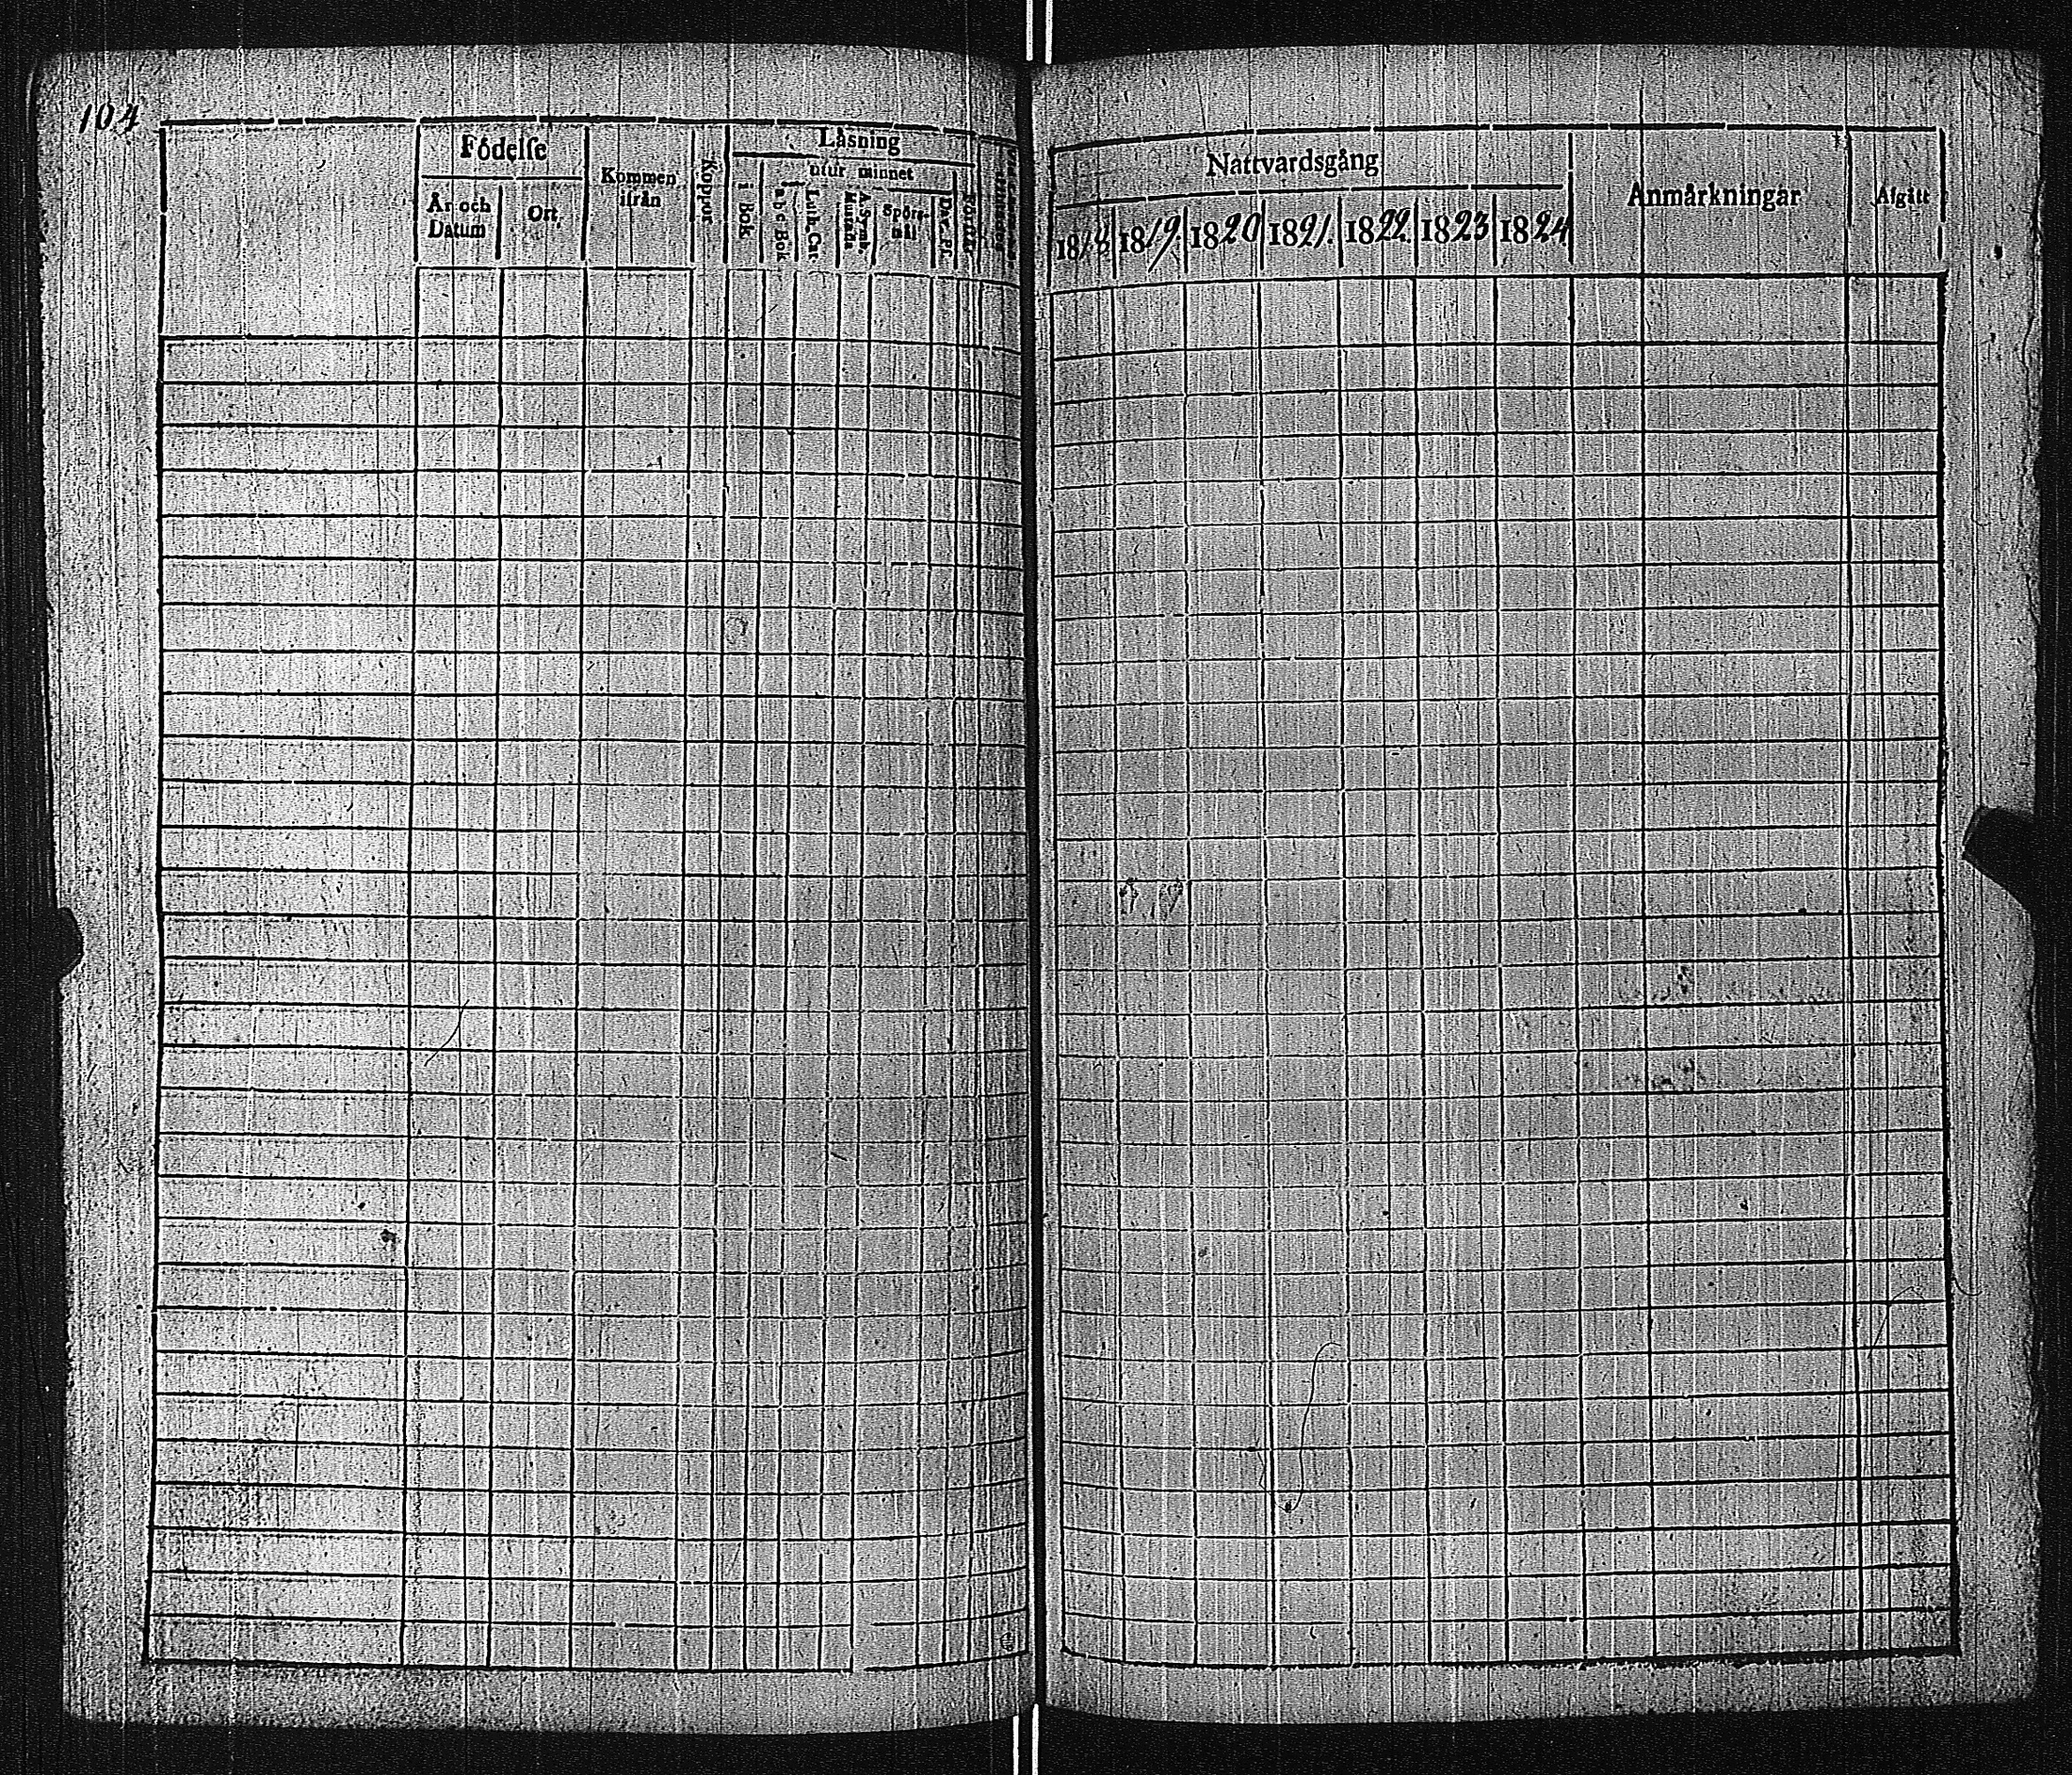 104
Födelse
År och Datum
Ort
Kommen ifrån
Koppor
Läsning
i Bok
utur minnet
a b c Bok
Luth. Cat.
A. Symb.
Spörs-
mål
Dav. Ps.
Nattvardsgång
1818 1819 1820 1821. 1822. 1823 1824
Anmärkningar
Afgått